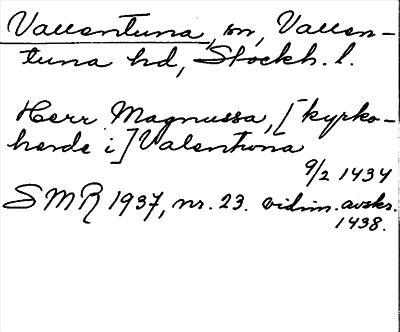 Vallentuna, sn, Vallen-
tuna hd, Stockh. l.
Herr Magnussa, [kyrko-
herde i] Valentuna
9/2 1434
SMR 1937, nr. 23. vidim. avskr.
1438.